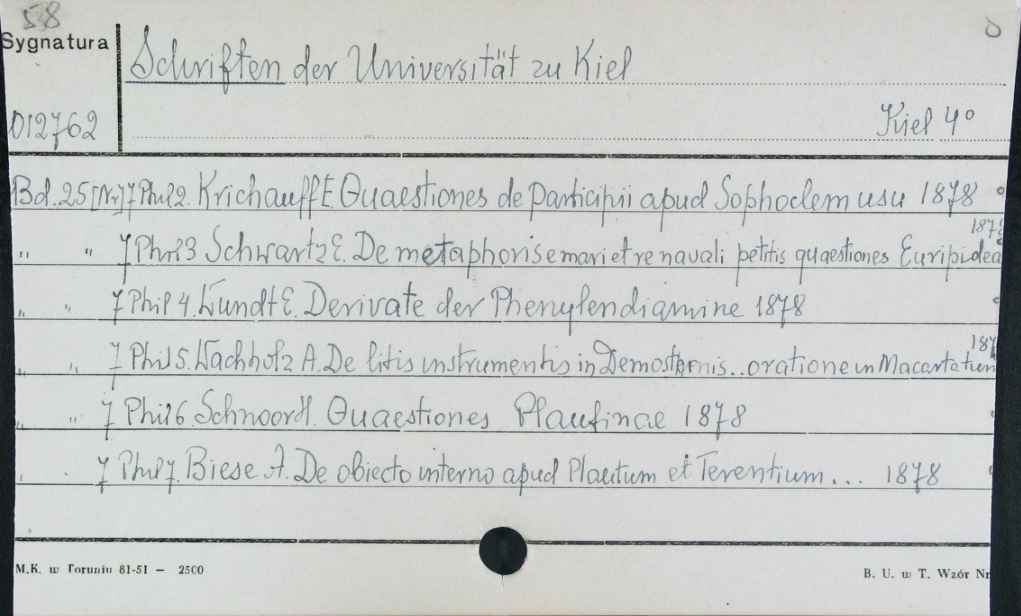 58
Sygnatura
Schriften der Universität zu Kiel
012762
Kiel 4°
Bd. 25 [Nr] 7 Phil 2. Krichauff E. Quaestiones de participii apud Sophoclem usu 1878
" " 7 Phil 3 Schwartz E. De metaphoris e mari et re navali petitis quaestiones Euripidea
" " 7 Phil 4. Wundt E. Derivate der Phenylendiamine 1878
" " 7 Phil 5. Wachholz A. De litis instrumentis in Demosthenis .. oratione in Macartatum
" " 7 Phil 6. Schnoor H. Quaestiones Plautinae 1878
" " 7 Phil 7. Biese A. De obiecto interno apud Plautum et Terentium... 1878
M.K. w Toruniu 81-51 – 2500
B. U. w T. Wzór Nr